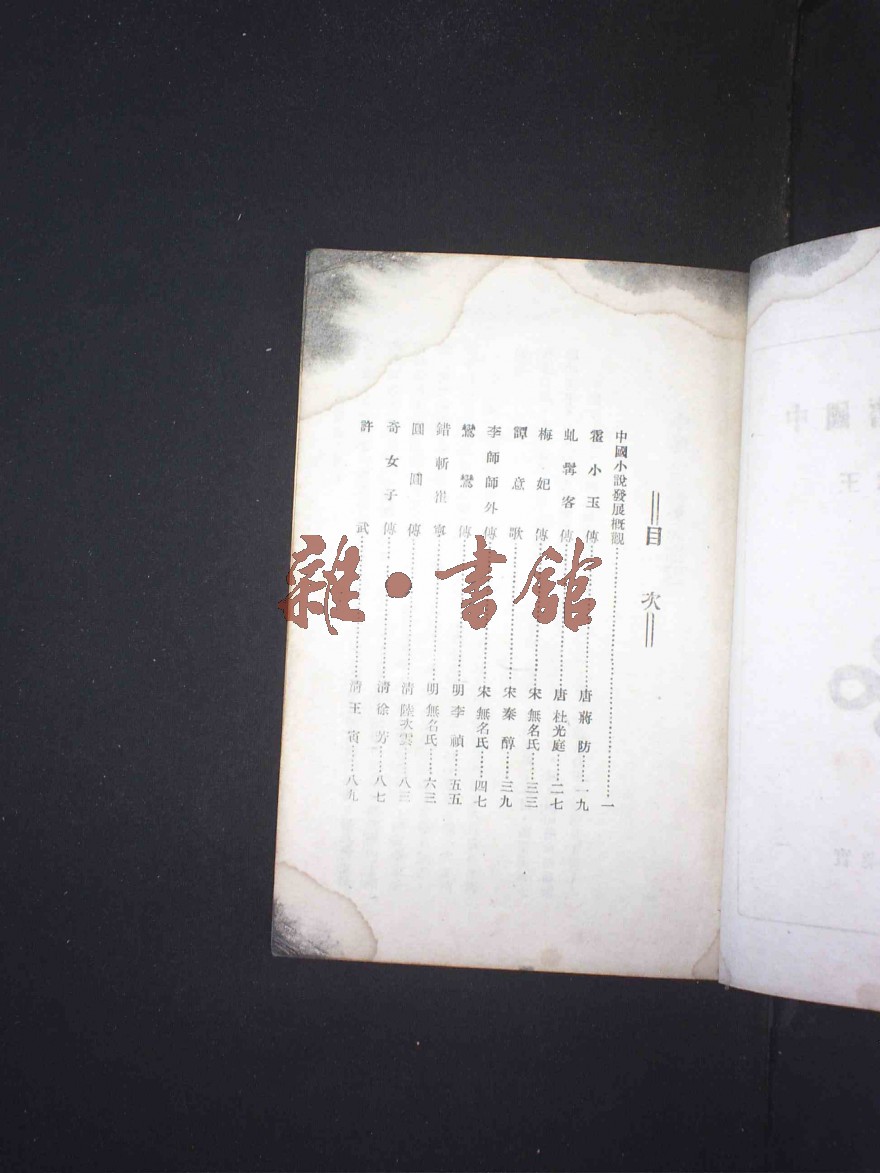 目次
中國小說發展概觀……一
霍小玉傳……唐 蔣防……一九
虬髯客傳……唐 杜光庭……二七
梅妃傳……宋 無名氏……三三
譚意歌……宋 秦醇……三九
李師師外傳……宋 無名氏……四七
鸞鸞傳……明 李禎……五五
錯斬崔寧……明 無名氏……六三
圓圓傳……清 陸次雲……八三
奇女子傳……清 徐芳……八七
許武……清 王寅……八九
雜·書館
國中
王